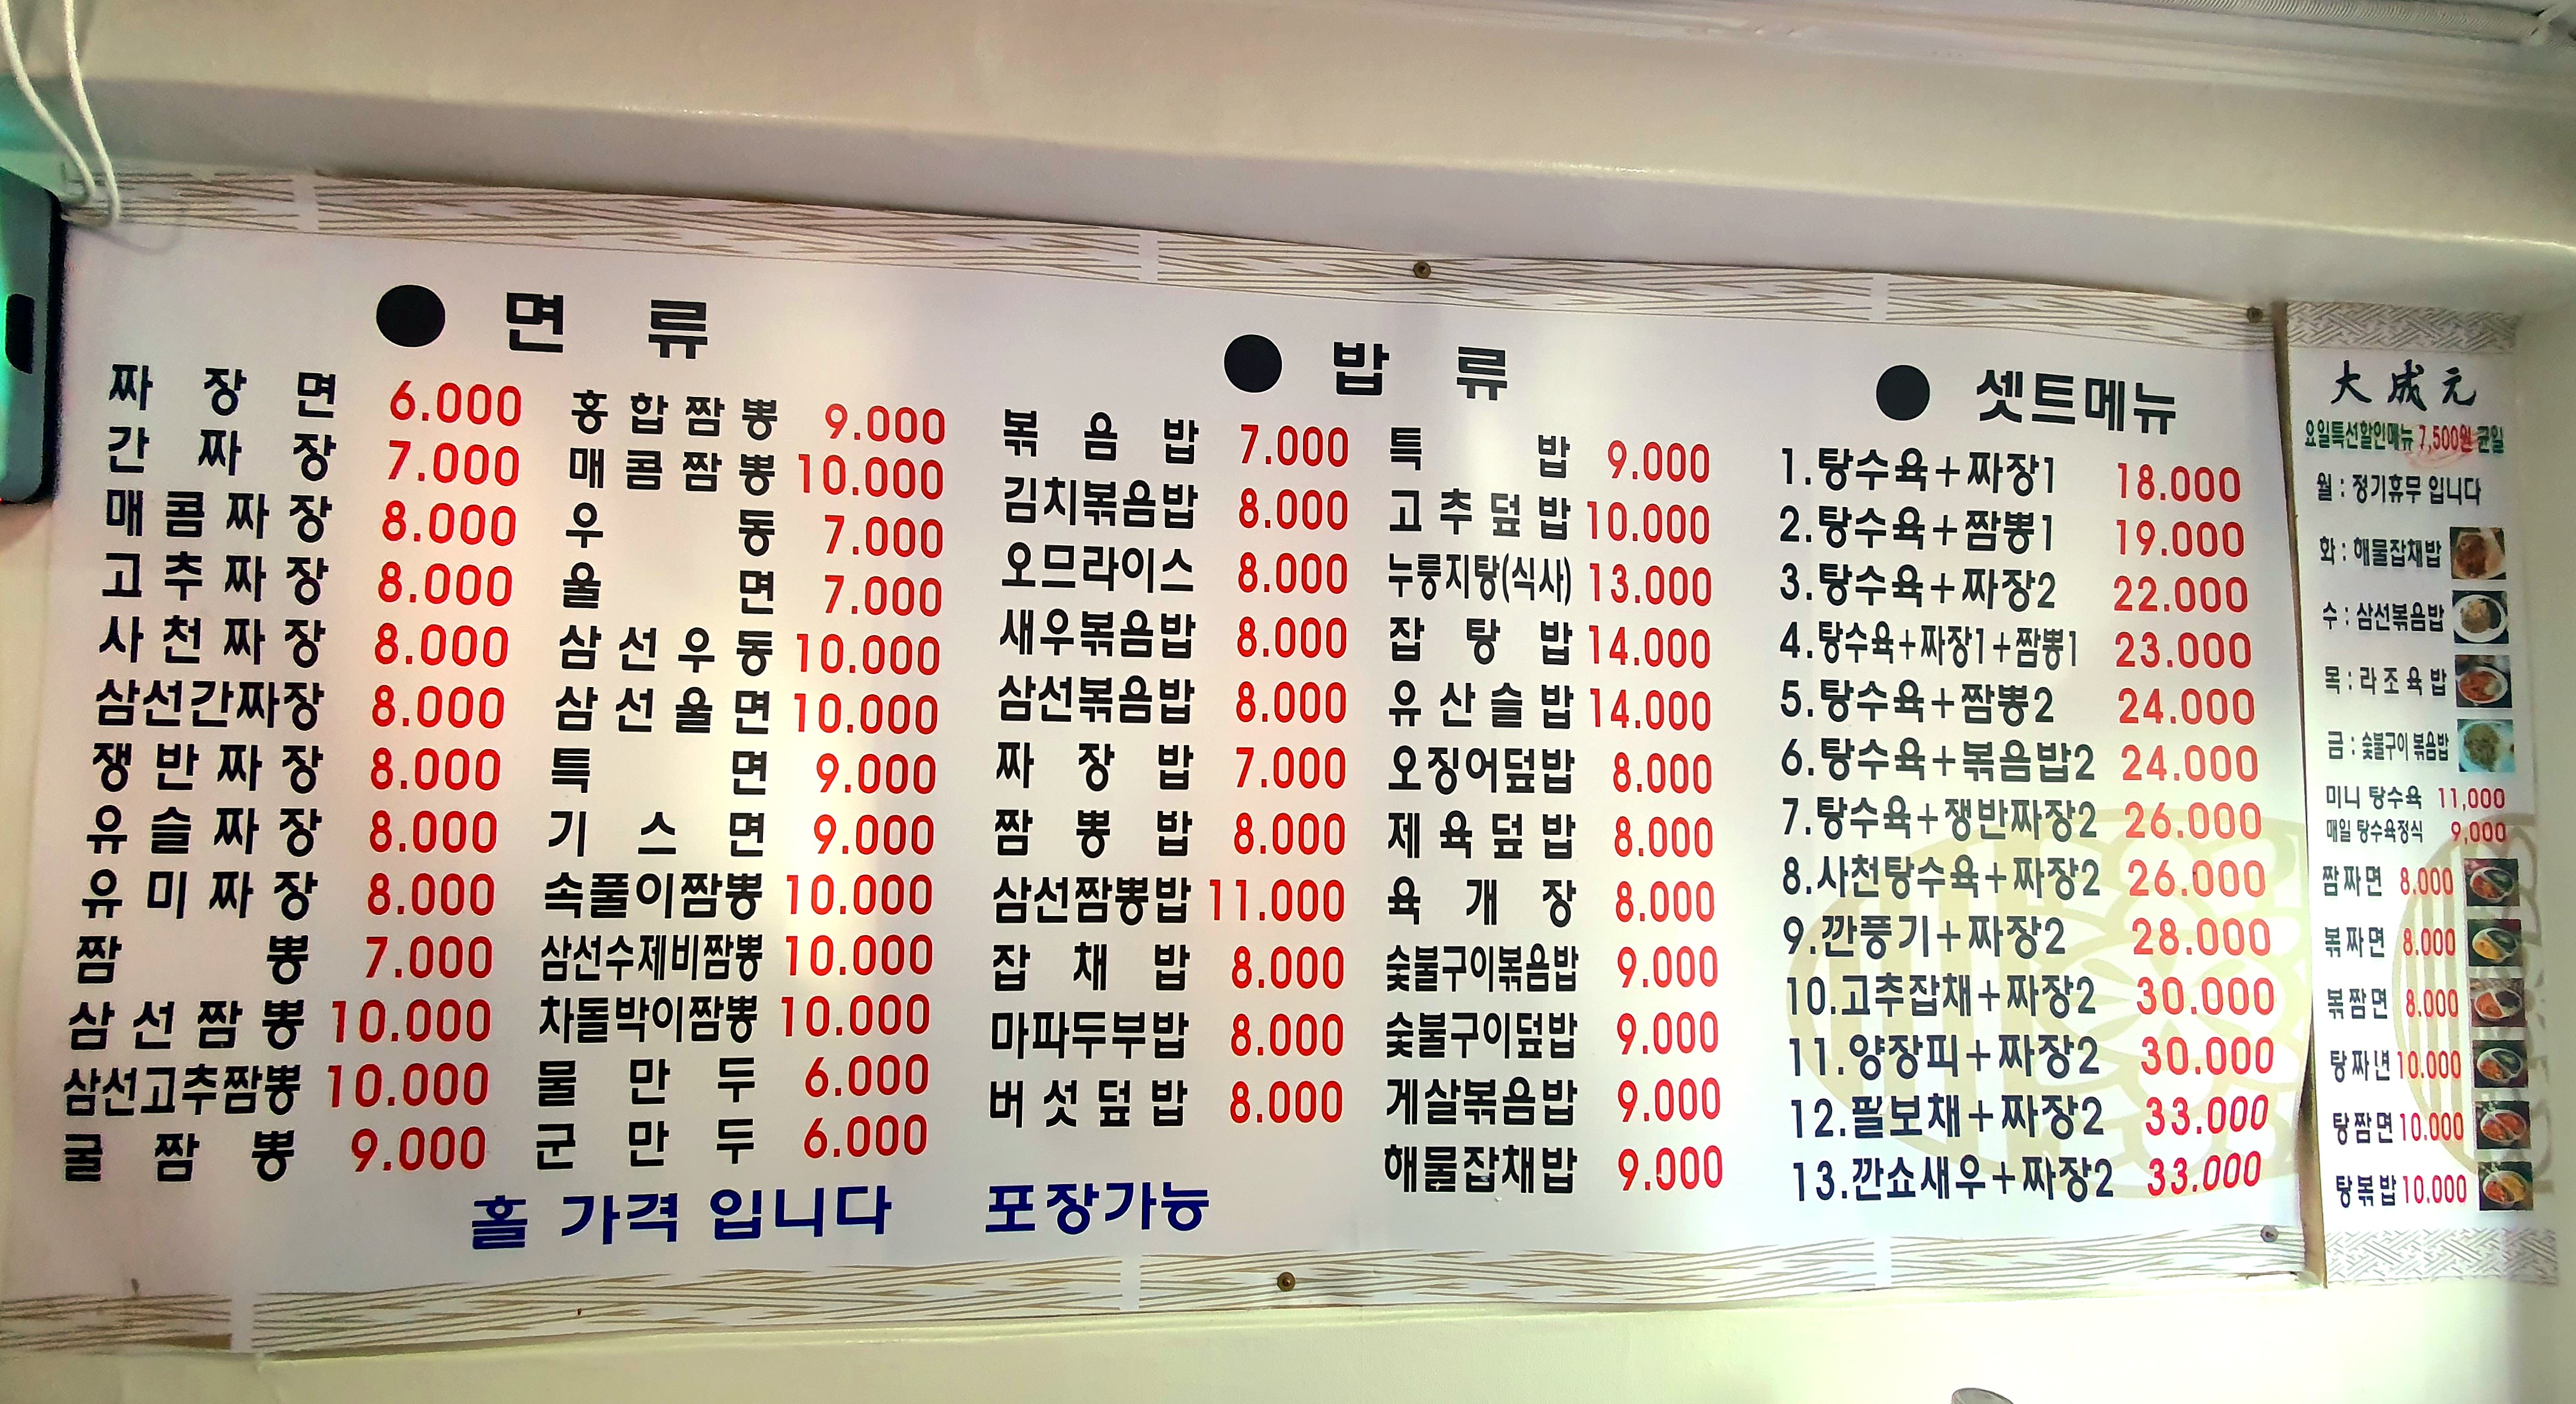 ● 면 류
짜 장 면 6.000
간 짜 장 7.000
매 콤 짜 장 8.000
고 추 짜 장 8.000
사 천 짜 장 8.000
삼선간짜장 8.000
쟁 반 짜 장 8.000
유 슬 짜 장 8.000
유 미 짜 장 8.000
짬 뽕 7.000
삼 선 짬 뽕 10.000
삼선고추짬뽕 10.000
굴 짬 뽕 9.000
홍 합 짬 뽕 9.000
매 콤 짬 뽕 10.000
우 동 7.000
울 면 7.000
삼 선 우 동 10.000
삼 선 울 면 10.000
특 면 9.000
기 스 면 9.000
속풀이짬뽕 10.000
삼선수제비짬뽕 10.000
차돌박이짬뽕 10.000
물 만 두 6.000
군 만 두 6.000
● 밥 류
볶 음 밥 7.000
김치볶음밥 8.000
오므라이스 8.000
새우볶음밥 8.000
삼선볶음밥 8.000
짜 장 밥 7.000
짬 뽕 밥 8.000
삼선짬뽕밥 11.000
잡 채 밥 8.000
마파두부밥 8.000
버 섯 덮 밥 8.000
특 밥 9.000
고 추 덮 밥 10.000
누룽지탕(식사) 13.000
잡 탕 밥 14.000
유 산 슬 밥 14.000
오징어덮밥 8.000
제 육 덮 밥 8.000
육 개 장 8.000
숯불구이볶음밥 9.000
숯불구이덮밥 9.000
게살볶음밥 9.000
해물잡채밥 9.000
● 셋트메뉴
1.탕수육+짜장1 18.000
2.탕수육+짬뽕1 19.000
3.탕수육+짜장2 22.000
4.탕수육+짜장1+짬뽕1 23.000
5.탕수육+짬뽕2 24.000
6.탕수육+볶음밥2 24.000
7.탕수육+쟁반짜장2 26.000
8.사천탕수육+짜장2 26.000
9.깐풍기+짜장2 28.000
10.고추잡채+짜장2 30.000
11.양장피+짜장2 30.000
12.필보채+짜장2 33.000
13.깐쇼새우+짜장2 33.000
홀 가격 입니다 포장가능
大成元
요일특선할인메뉴 7,500원 균일
월 : 정기휴무 입니다
화 : 해물잡채밥
수 : 삼선볶음밥
목 : 라조육밥
금 : 숯불구이 볶음밥
미니 탕수육 11,000
매일 탕수육정식 9,000
짬짜면 8.000
볶짜면 8.000
볶짬면 8.000
탕짜년 10.000
탕짬면 10.000
탕볶밥 10.000